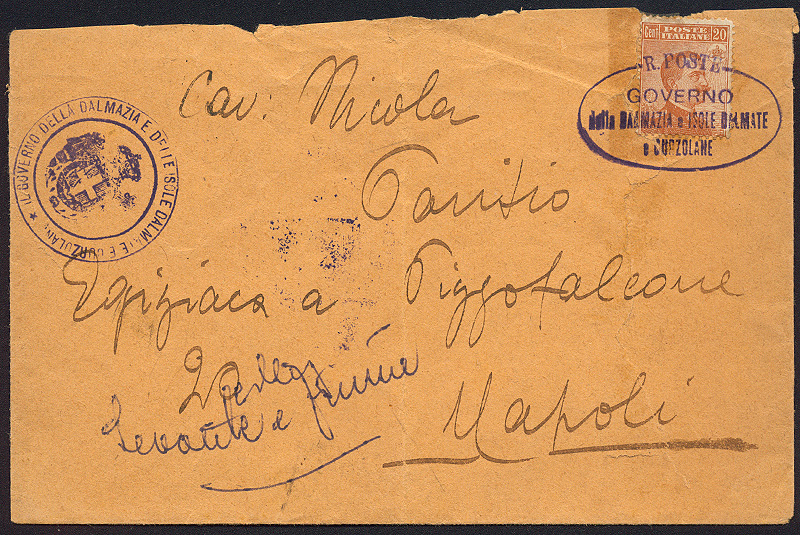 POSTE ITALIANE
Cent 20
R. POSTE
GOVERNO
della DALMAZIA e ISOLE DALMATE
e CURZOLANE
★ IL GOVERNO DELLA DALMAZIA E DELLE ISOLE DALMATE E CURZOLANE
Cav: Nicola
Egiziaca a Pizzofalcone
Levante e fiume
Napoli